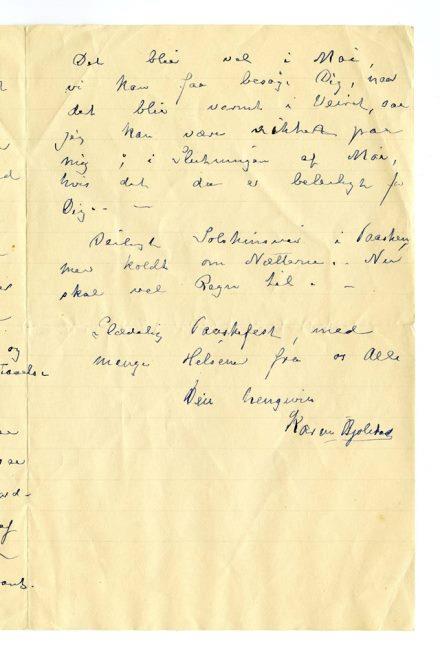 Det blir vel i Mai,
vi kan faa besøge Dig, naar
det blir varmt i Veiret, saa
jeg kan være sikker paa
mig; i Slutningen af Mai,
hvis det da er beleiligt for
Dig. —
Deiligt Solskinsveir i Paasken,
men koldt om Nætterne. Nu
skal vel Regn til. —
Glædelig Paaskefest, med
mange Hilsener fra os Alle
Din hengivne
Karen Bjølstad
og
af